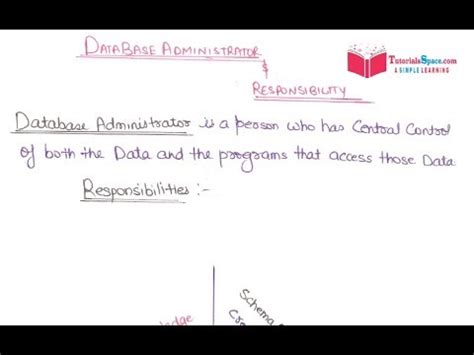 DATABASE ADMINISTRATOR
&
RESPONSIBILITY
TutorialsSpace.com
A SIMPLE LEARNING
Database Administrator is a person who has Central Control
of both the Data and the programs that access those Data
Responsibilities :-
Schema